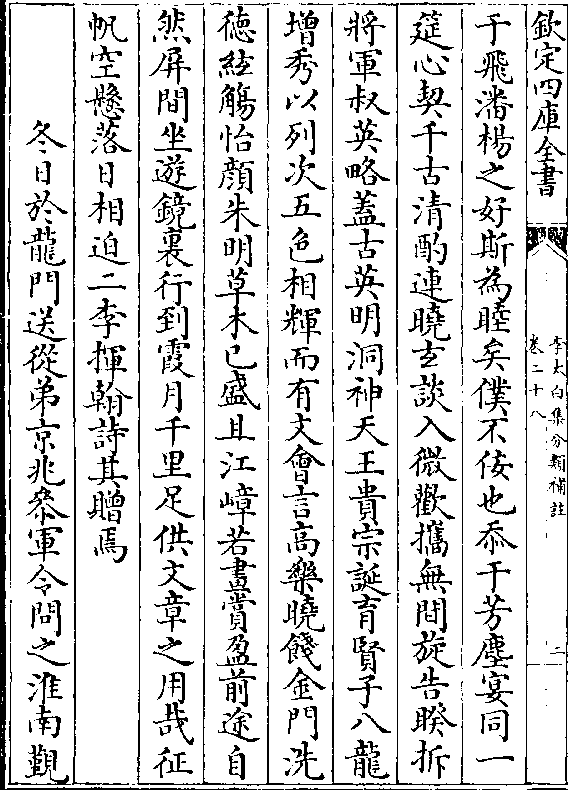 欽定四庫全書
李太白集分類補註
卷二十八
二
于飛潘楊之好斯為睦矣僕不佞也忝于芳塵宴同一
筵心契千古清酌連曉玄談入微歡攜無間旋告暌拆
將軍叔英略蓋古英明洞神天王貴宗誕育賢子八龍
增秀以列次五色相輝而有文會言高樂曉餞金門洗
德絃觴怡顔朱明草木已盛且江嶂若畫賞盈前途自
然屏間坐遊鏡裏行到霞月千里足供文章之用哉征
帆空懸落日相迫二李揮翰詩其贈焉
冬日於龍門送從弟京兆叅軍令問之淮南覲